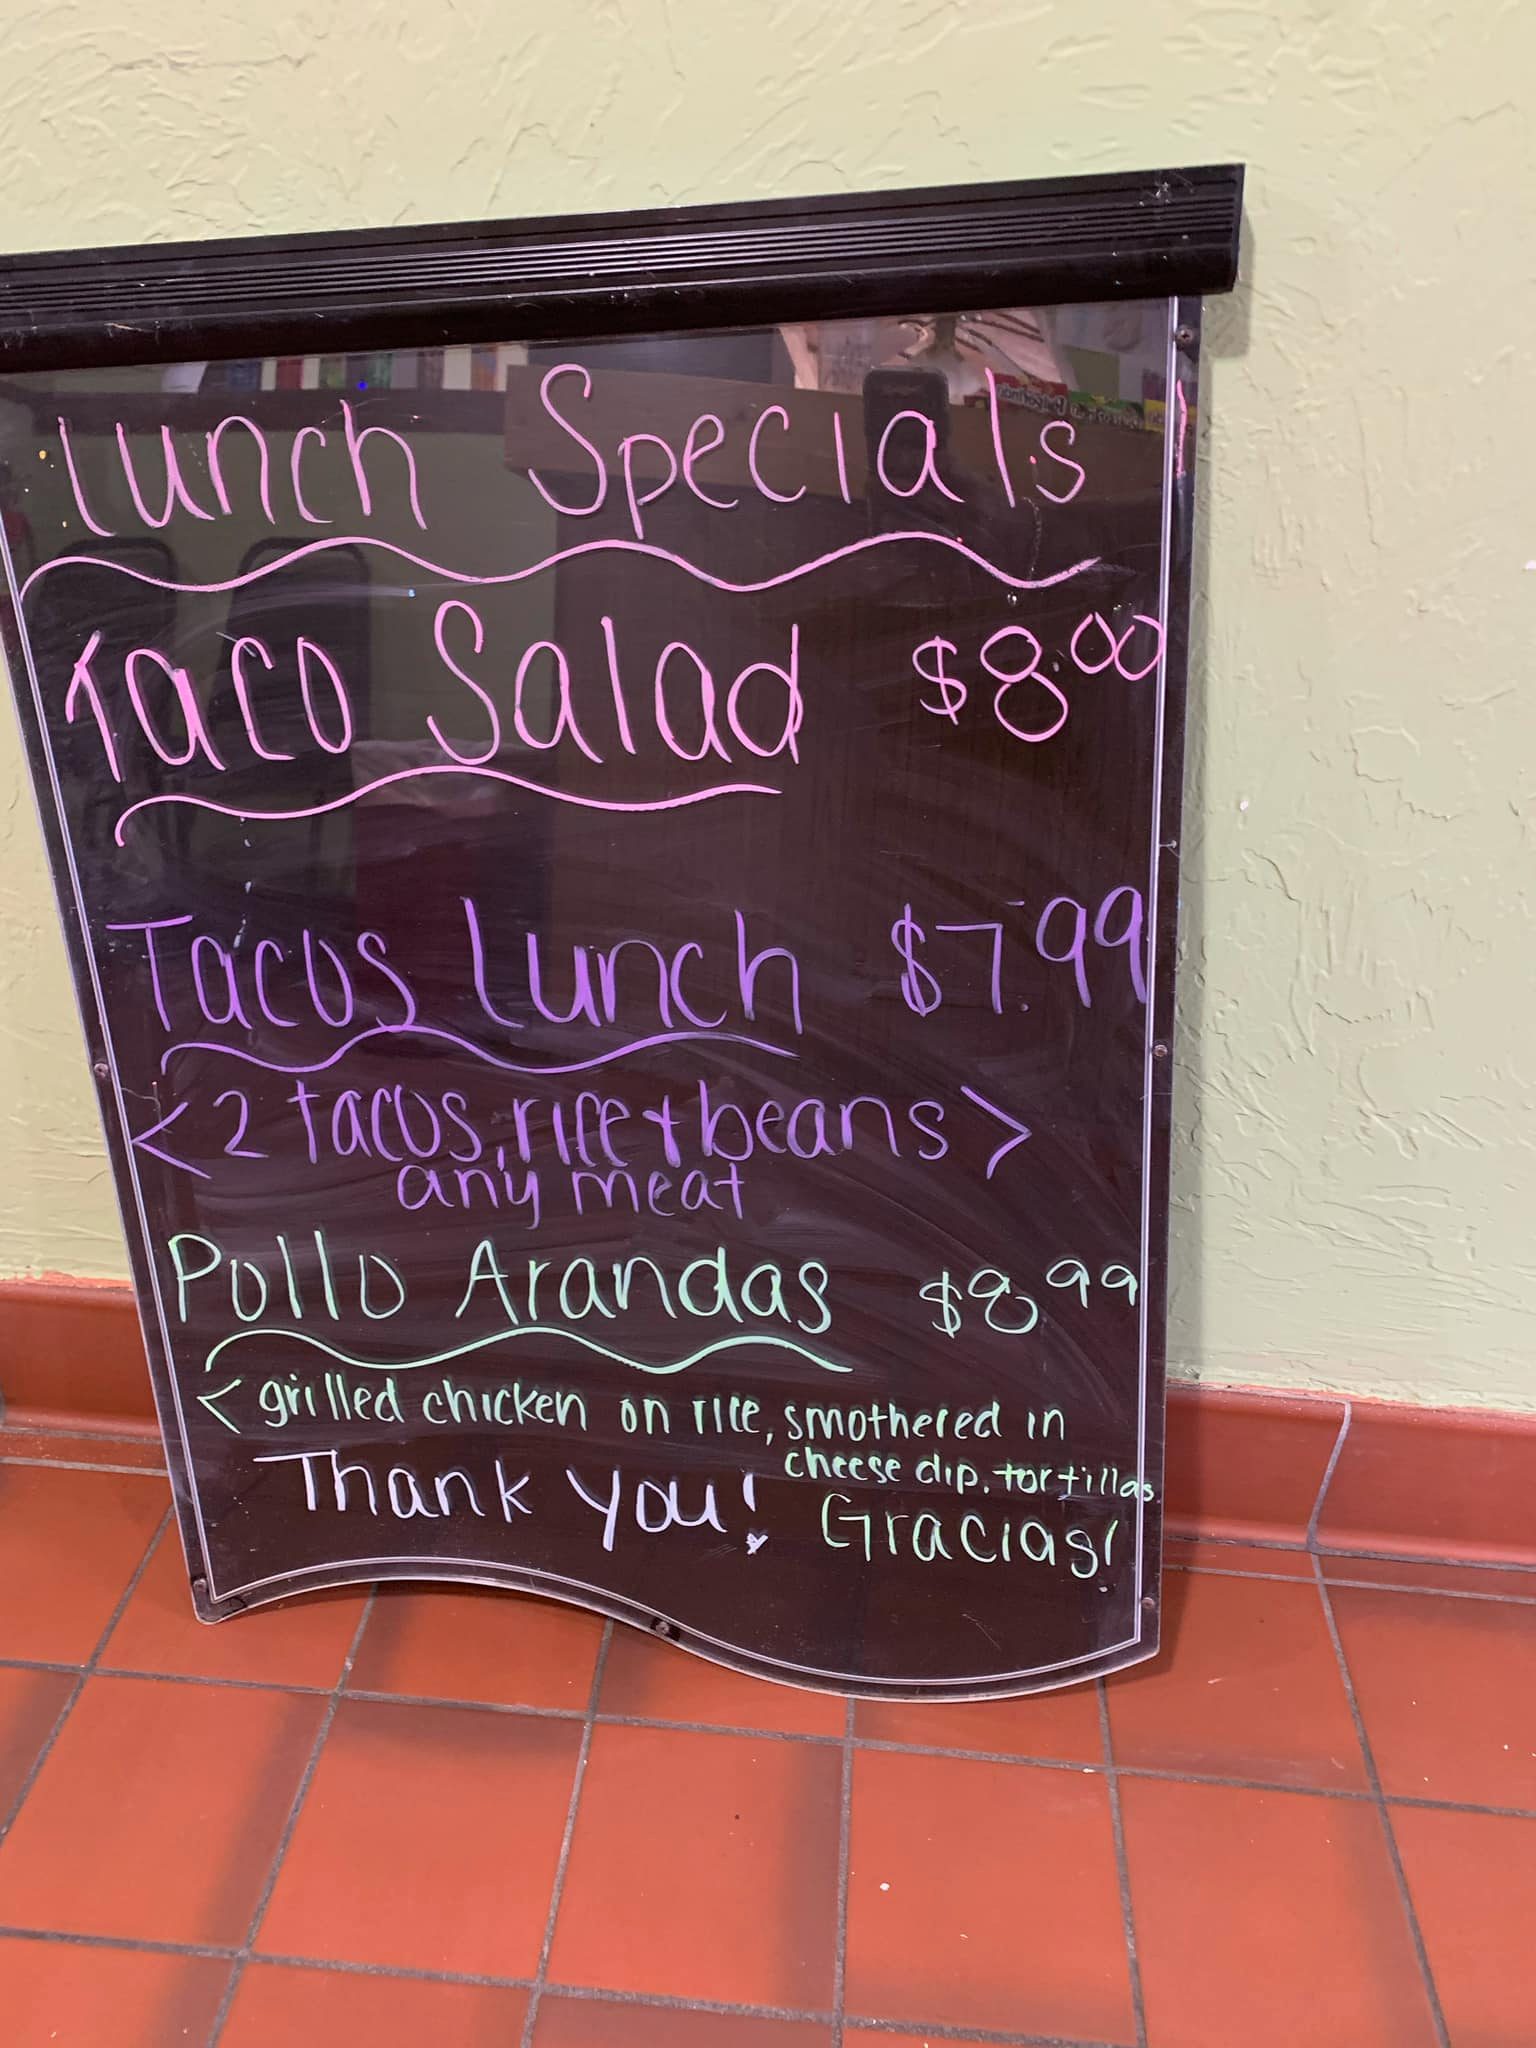 Lunch Specials
Taco Salad $8.00
Tacos Lunch $7.99
<2 tacos, rice + beans>
any meat
Pollo Arandas $8.99
<grilled chicken on rice, smothered in
cheese dip, tortillas
Thank you! Gracias!